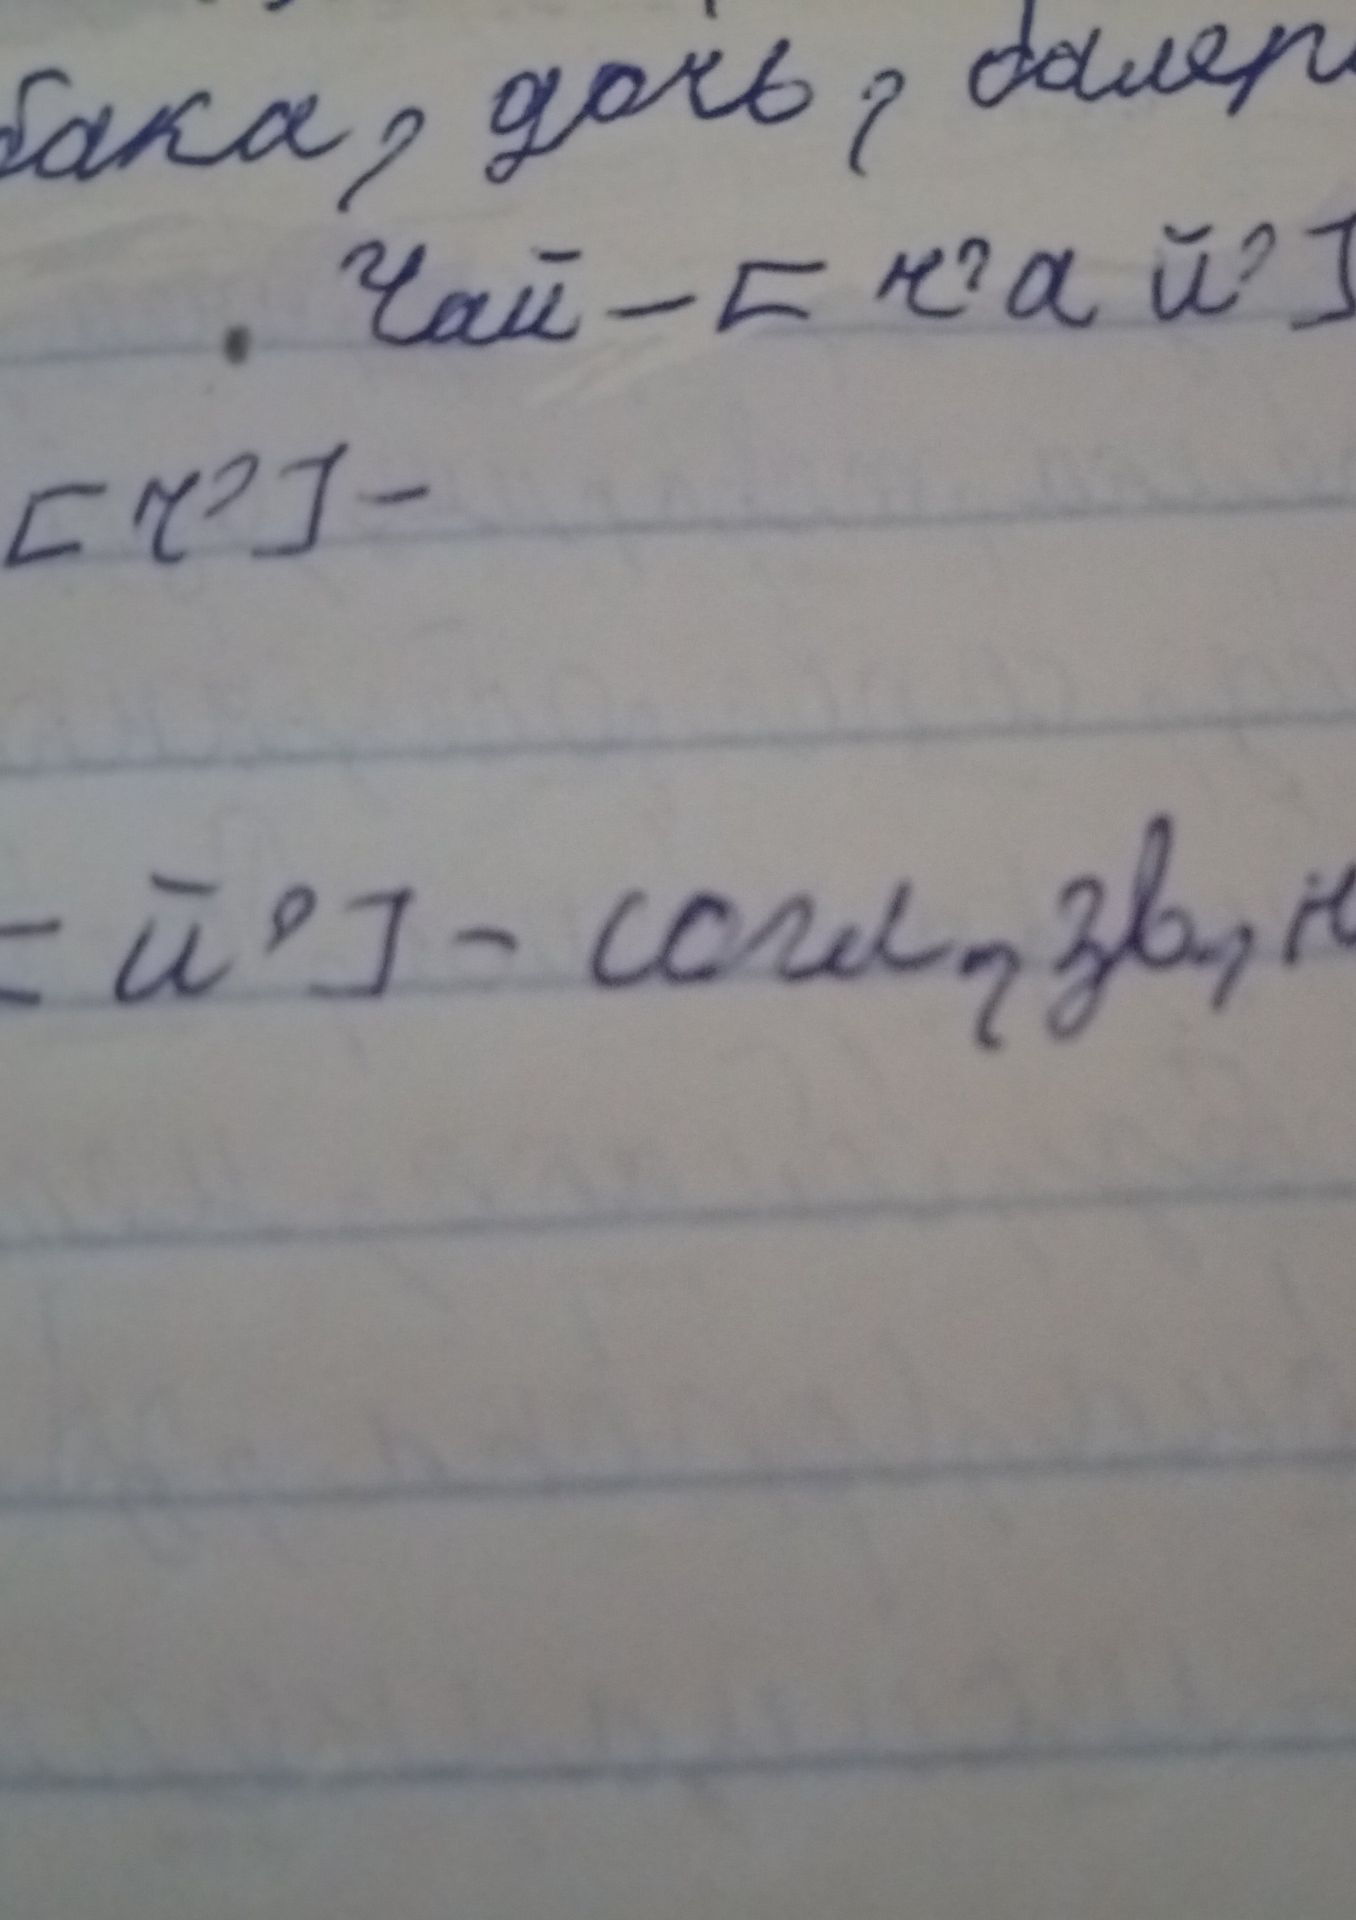 бака, дочь, балер
Чай - [ч'ай']
[ч'] -
[й'] - согл, зв, н